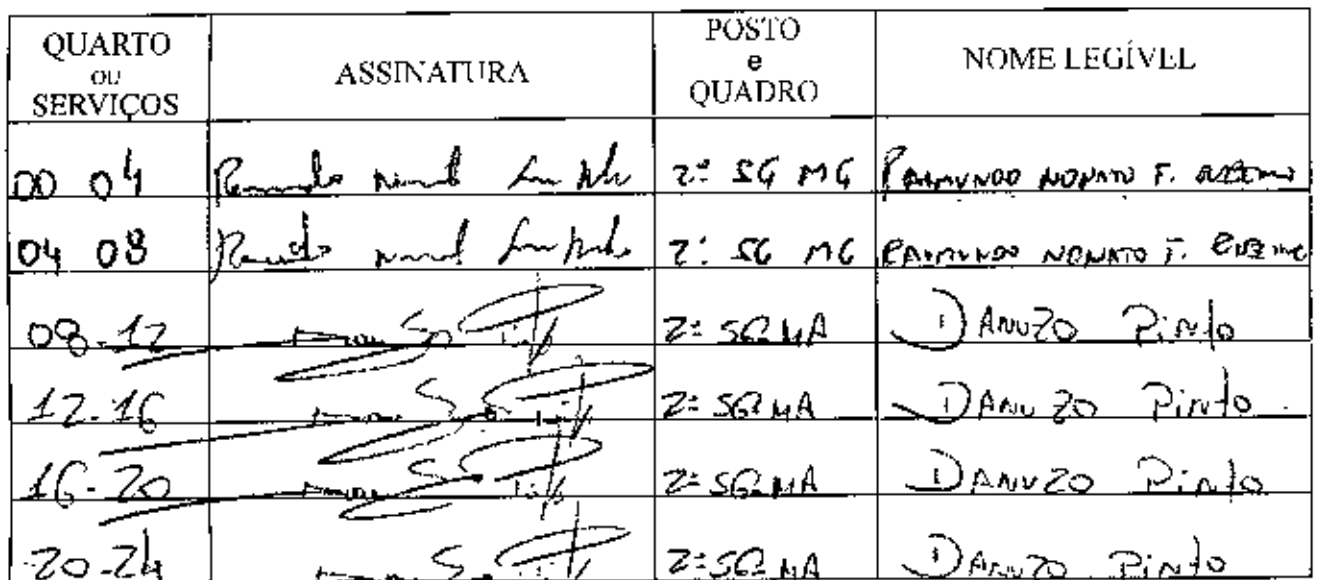 QUARTO
ou
SERVIÇOS
ASSINATURA
POSTO
e
QUADRO
NOME LEGÍVEL
00 04 2º SG MG RAIMUNDO NONATO F.
04 08 2º SG MG RAIMUNDO NONATO F.
08-12 2º SG MA DANUZO Pinto
12-16 2º SG MA DANUZO Pinto
16-20 2º SG MA DANUZO Pinto
20-24 2º SG MA DANUZO Pinto